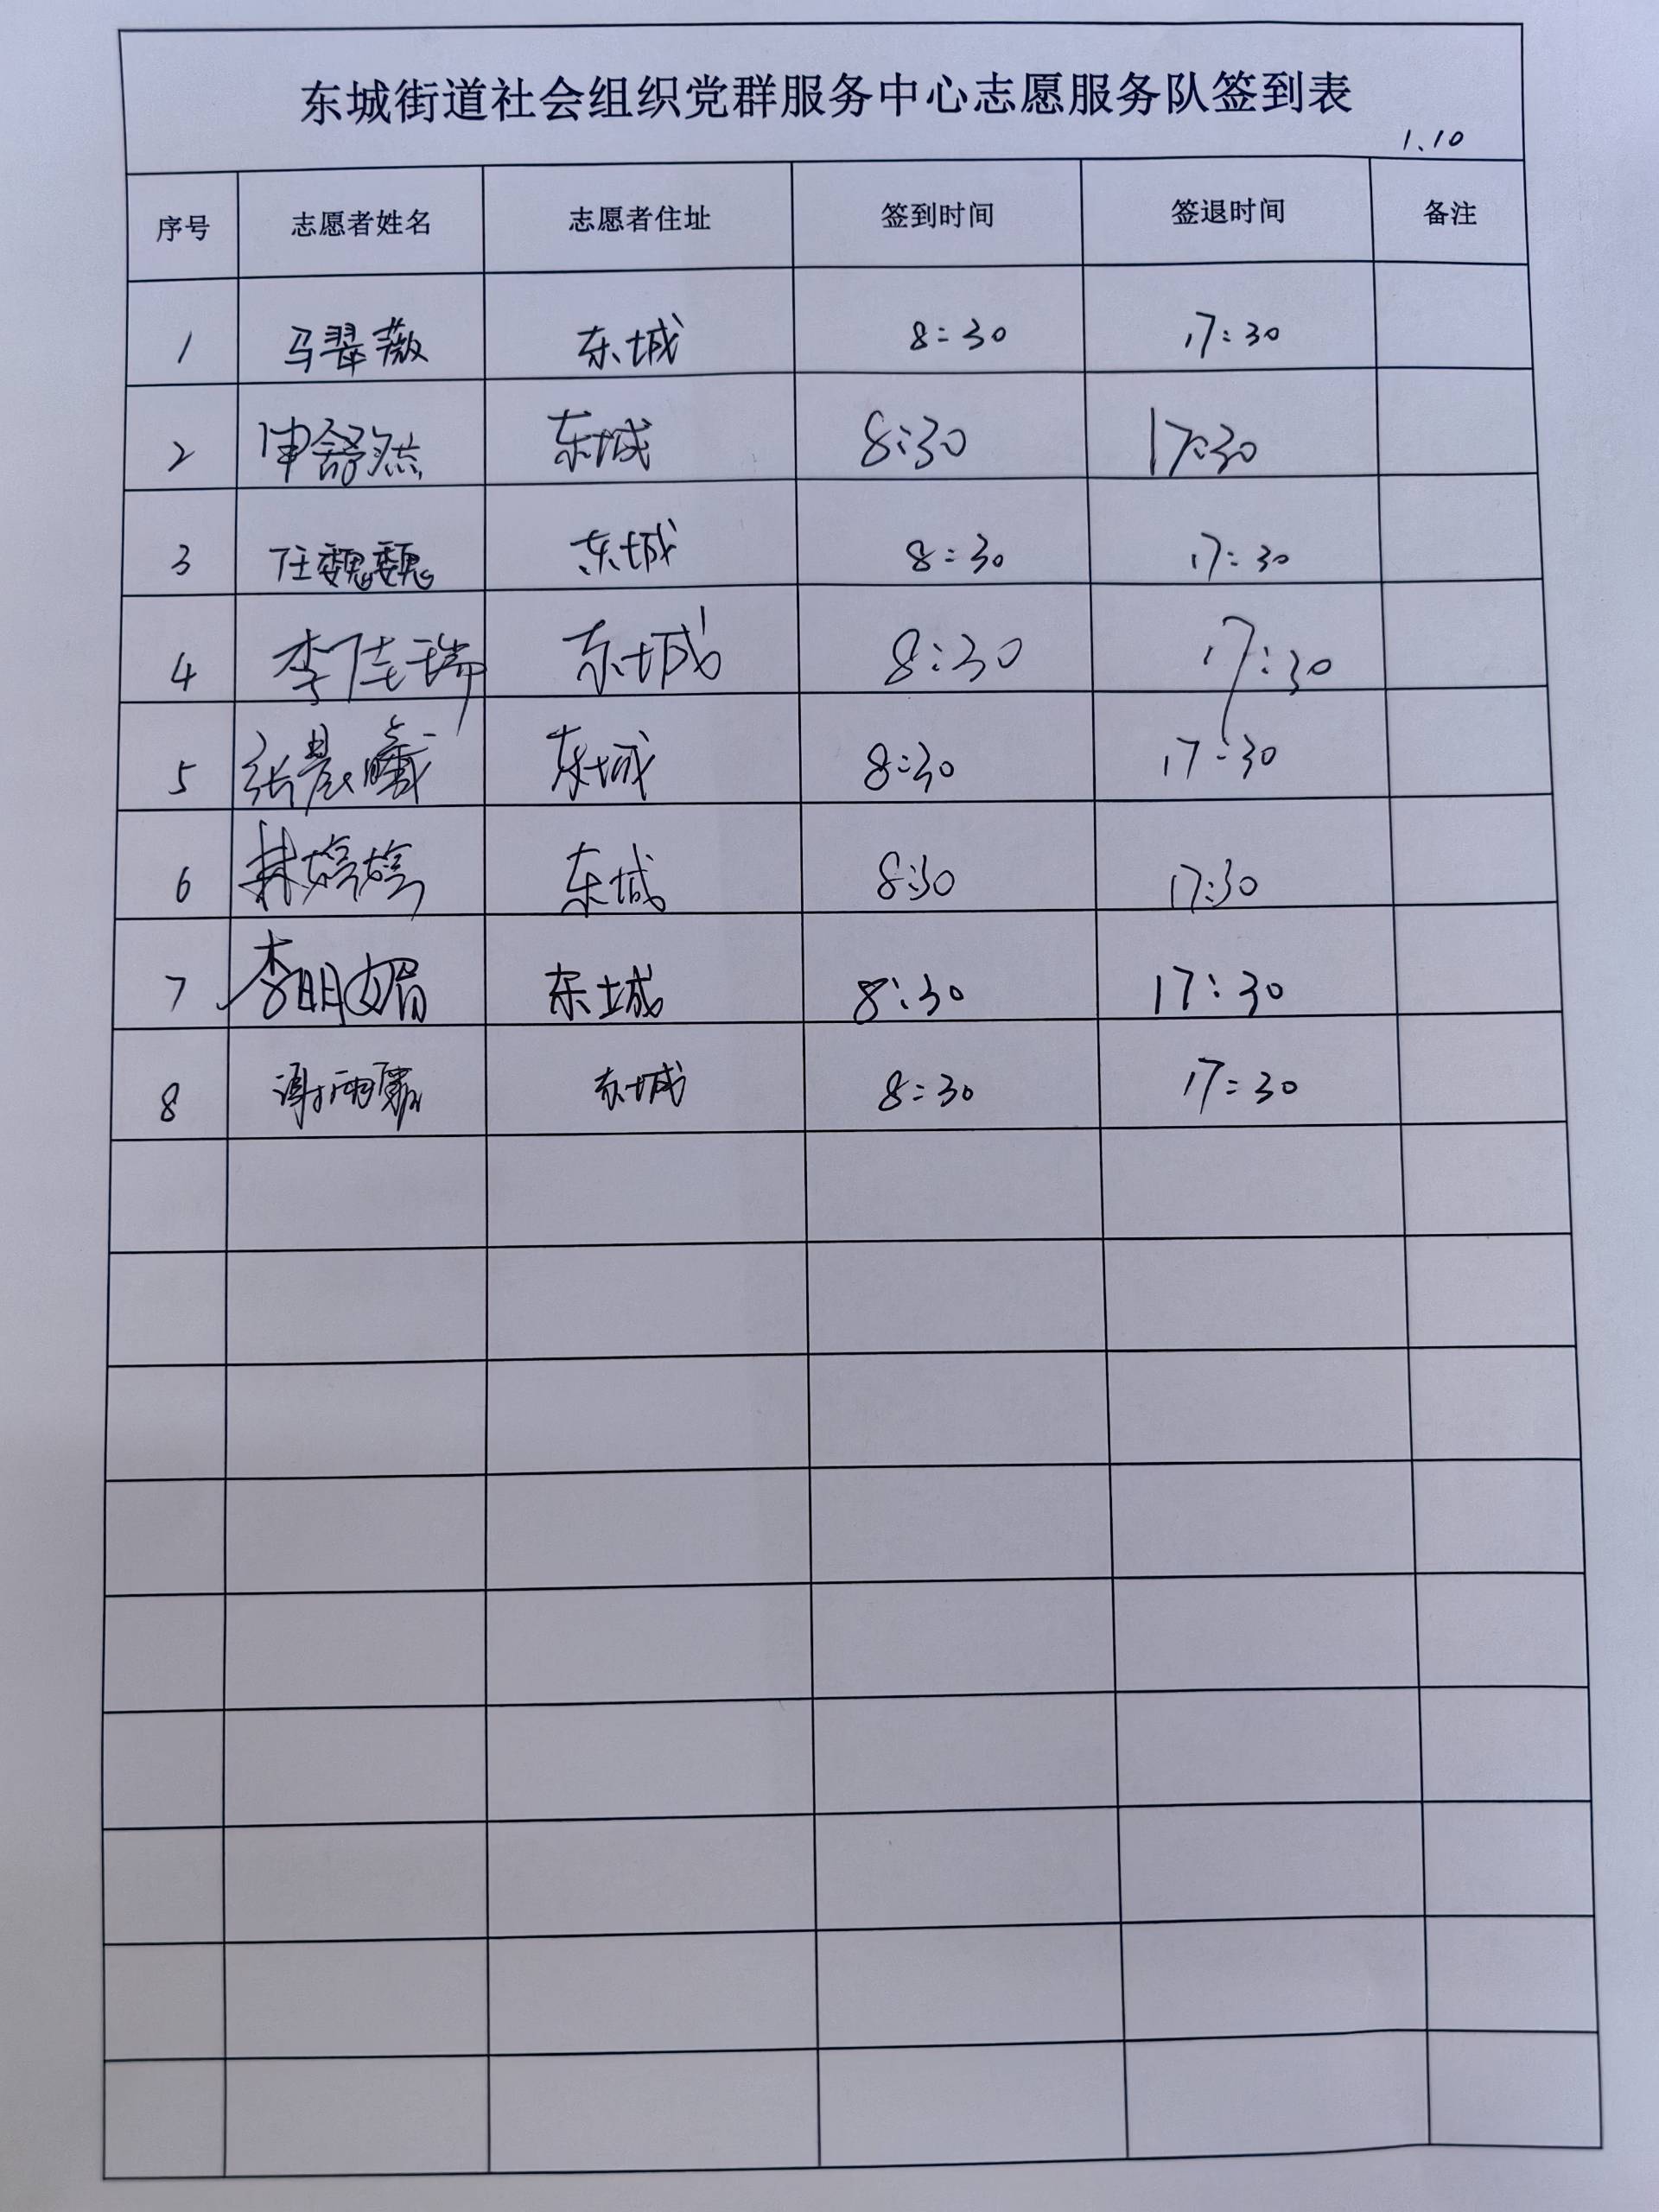 东城街道社会组织党群服务中心志愿服务队签到表
1.10
序号 志愿者姓名 志愿者住址 签到时间 签退时间 备注
1 马翠薇 东城 8:30 17:30
2 申舒然 东城 8:30 17:30
3 任魏魏 东城 8:30 17:30
4 李佳瑞 东城 8:30 17:30
5 张晨曦 东城 8:30 17:30
6 林婷婷 东城 8:30 17:30
7 李明媚 东城 8:30 17:30
8 谢雨霏 东城 8:30 17:30